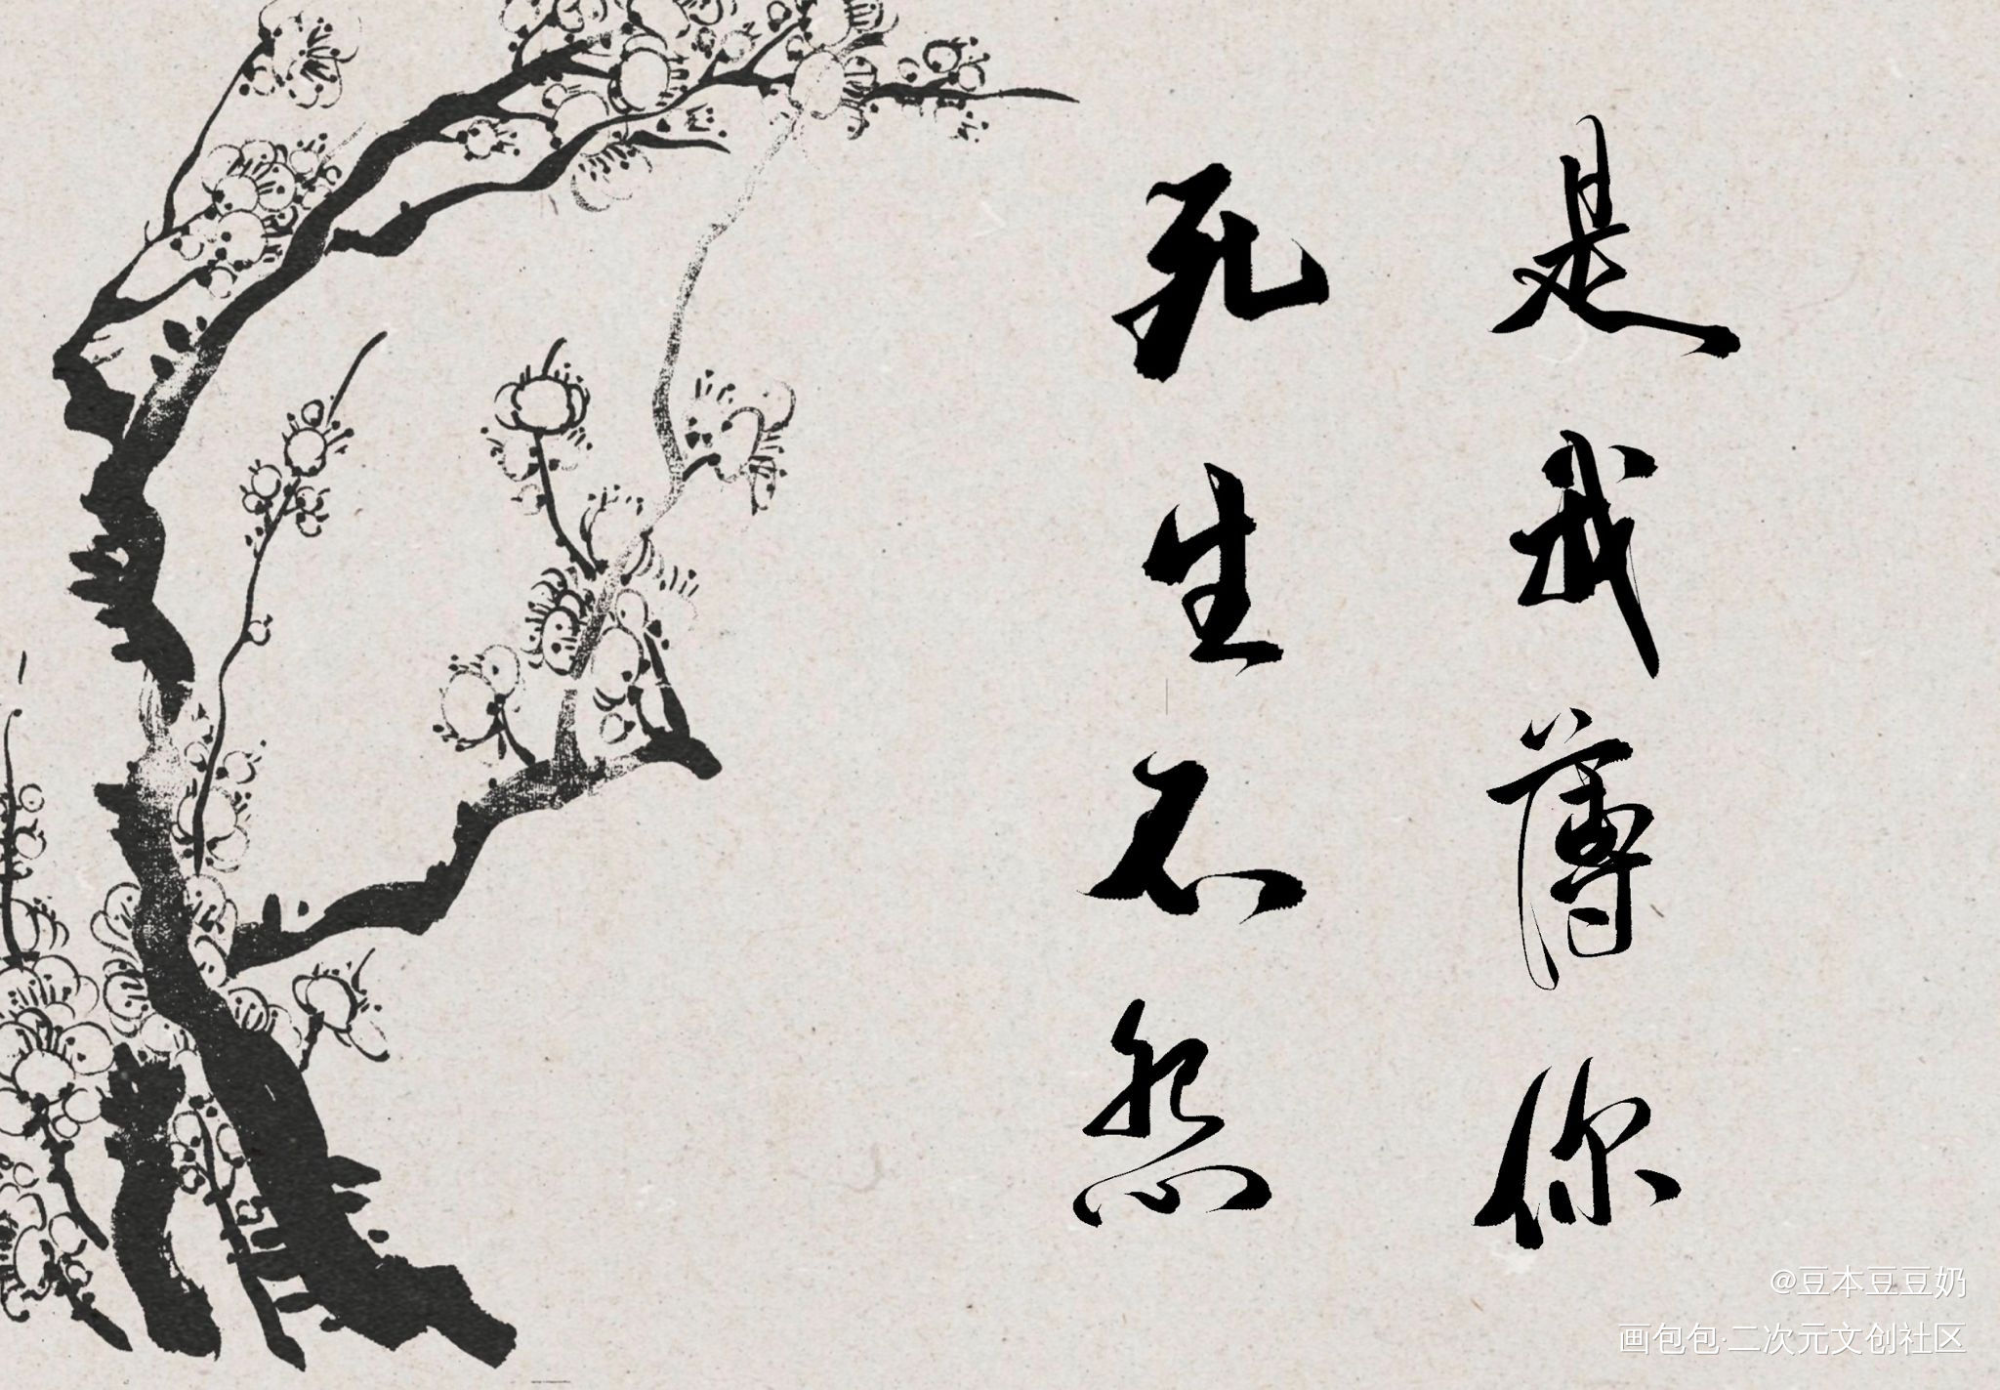 是我薄你
死生不怨
@豆本豆豆奶
画包包·二次元文创社区